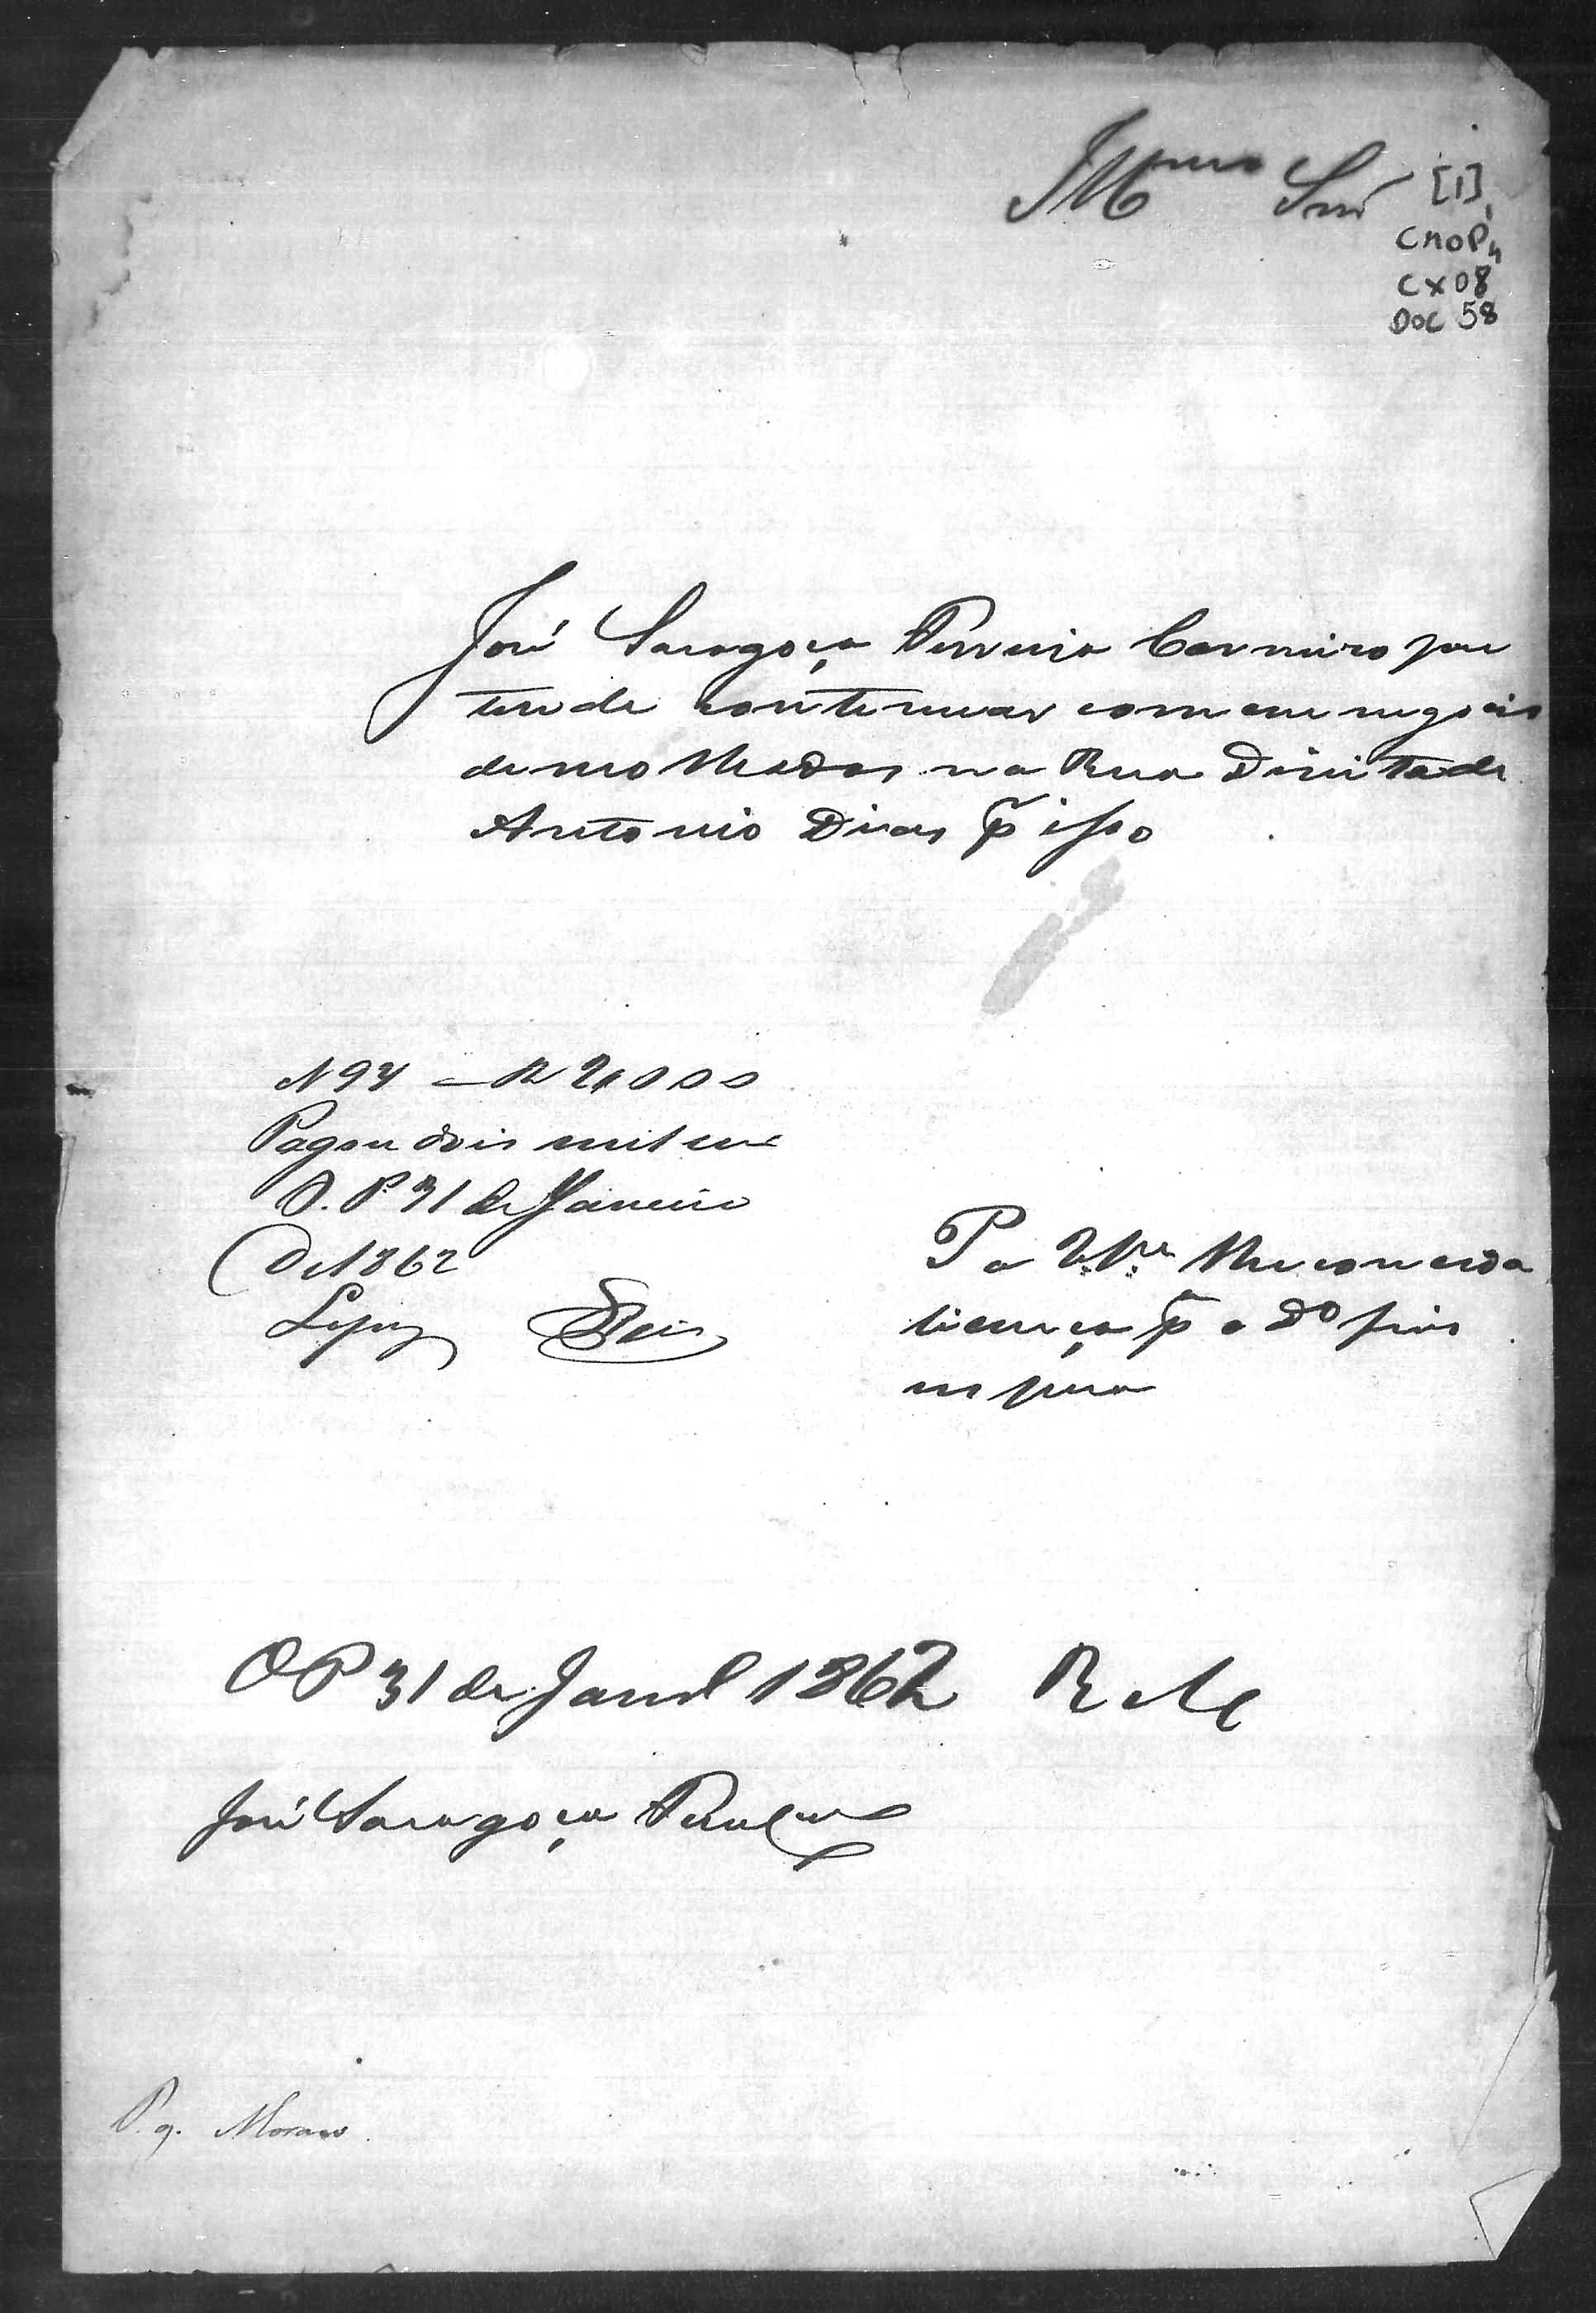 Illmo Snr
[1]
CMOP
CX08
DOC 58
José Saragoça Ferreira Carneiro per
tende continuar com seu negocio
de molhados na Rua Direita de
Antonio Dias p isso
N 94 — R 2,000
Pagou dois mil
O. P. 31 de Janeiro
de 1862
Reis
P a V.Sa lhe conceda
licença pa o do fim
O P 31 de Janro 1862 R M
José Saragoça
P. g. Moraes.